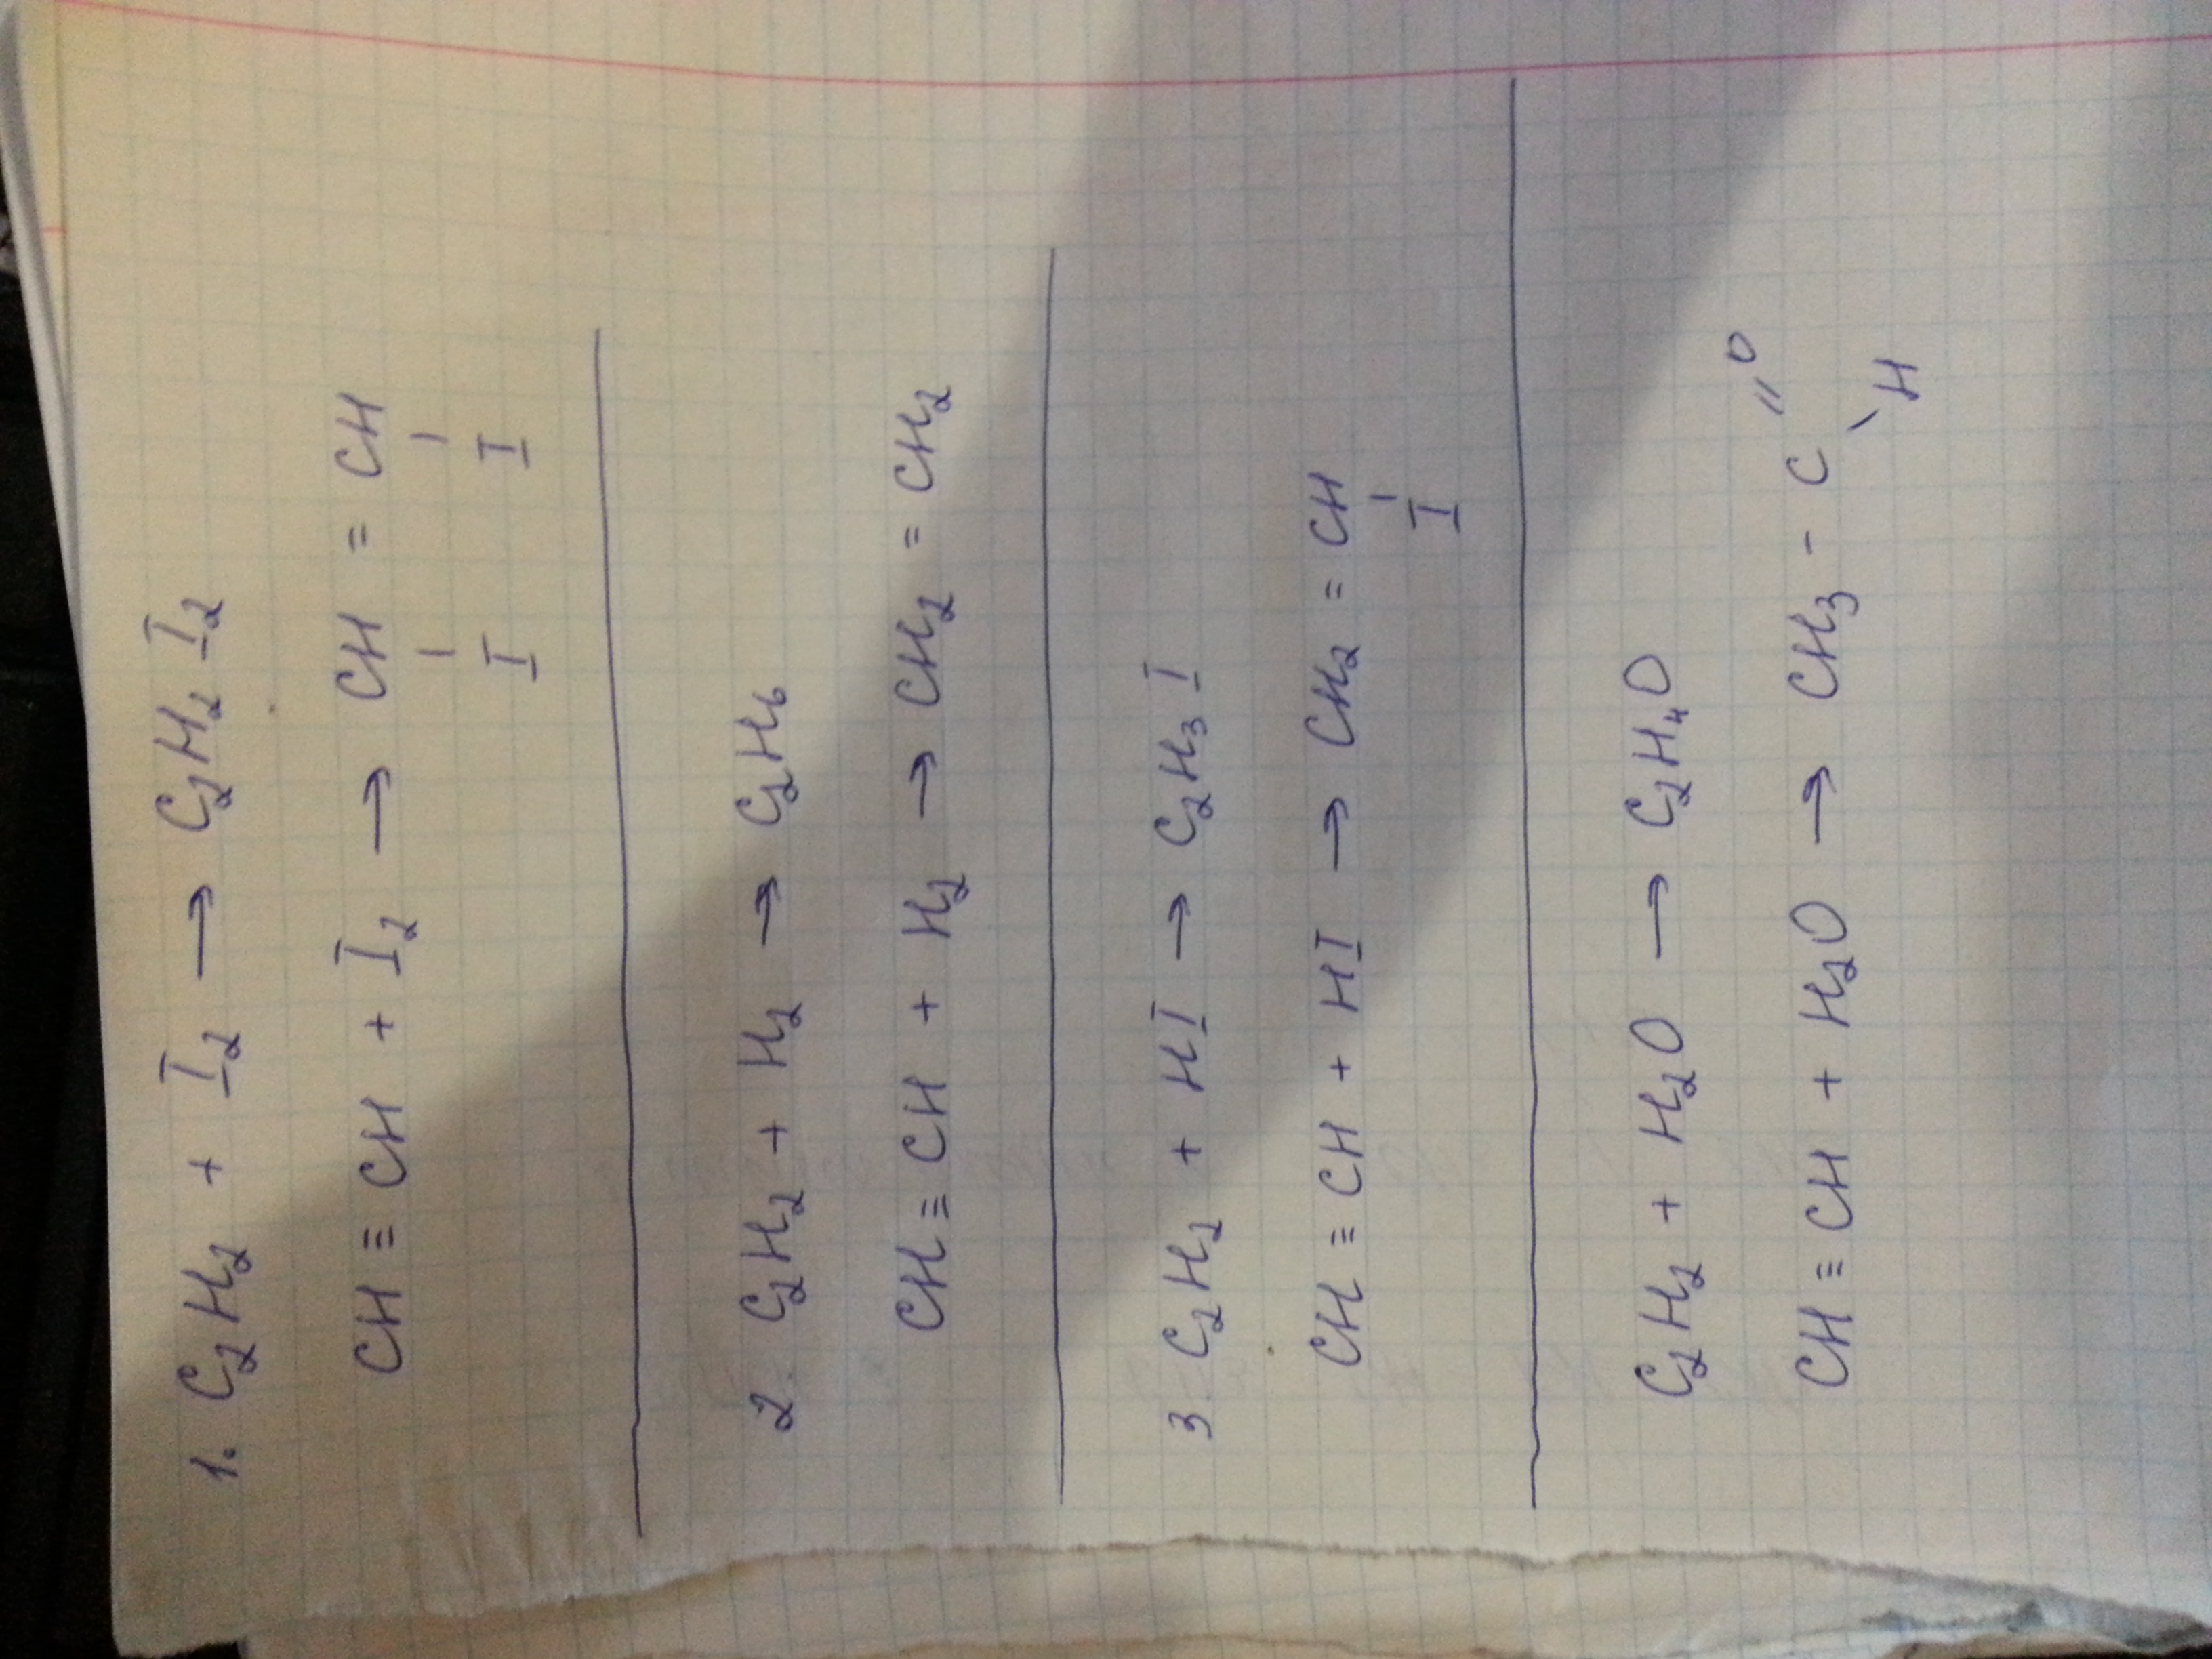 1. C₂H₂ + I₂ → C₂H₂I₂
CH ≡ CH + I₂ → CH = CH
I I
2. C₂H₂ + H₂ → C₂H₆
CH ≡ CH + H₂ → CH₂ = CH₂
3. C₂H₂ + HI → C₂H₃I
CH ≡ CH + HI → CH₂ = CH
I
C₂H₂ + H₂O → C₂H₄O
O
CH ≡ CH + H₂O → CH₃ - C
H